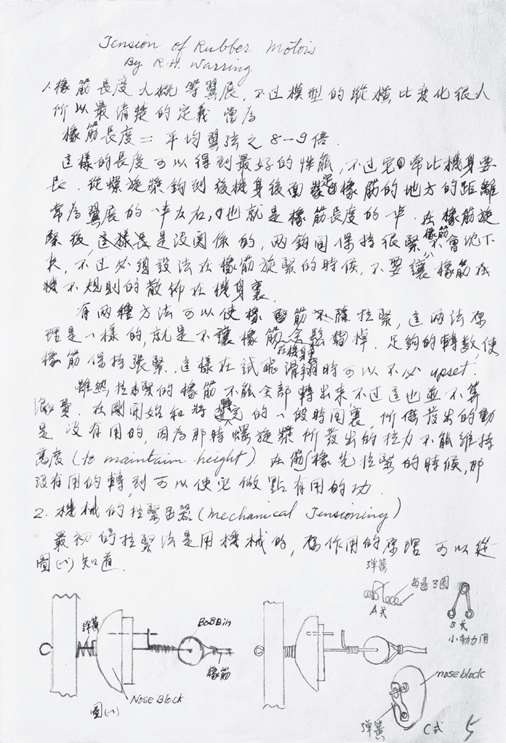 Tension of Rubber Motors
By R.H. Warring
1. 橡筋長度大概等翼展,不过模型的縱橫比变化很大
所以最清楚的定義當為
橡筋長度=平均翼弦之8—9倍.
這樣的長度可以得到最好的性能,不过它常比机身要
長.從螺旋槳鈎到後機身後面裝橡筋的地方的距離
常為翼展的一半左右,也就是橡筋長度的一半.在橡筋旋
緊後,這樣長是沒関係的,兩鈎间保持很緊橡筋不會沉下
来,不过必須設法在橡筋旋鬆的時候,不要讓橡筋在
機不規則的散佈在機身裏.
有两種方法可以使橡筋拉緊,這两法原
理是一樣的,就是不讓橡筋全鬆掉.足夠的轉數使
橡筋保持張緊.這樣在試飛滑翔時可以不必upset.
雖然拉緊的橡筋不能全部轉出来不过這也並不算
浪費.在剛開始和將完的一段時间裏,所發出的動
是没有用的,因為那時螺旋槳所發出的拉力不能維持
高度(to maintain height)在橡筋先拉緊的時候,那
没有用的轉,到可以使它做點有用的功.
2. 機械的拉緊器(mechanical Tensioning)
最初的拉緊法是用機械的,作用的原理可以從
圖(一)知道.
彈簧
每邊3圈
A式
B式
小動力用
彈簧
Bobbin
橡筋
Nose Block
圖(一)
nose block
彈簧
C式
5